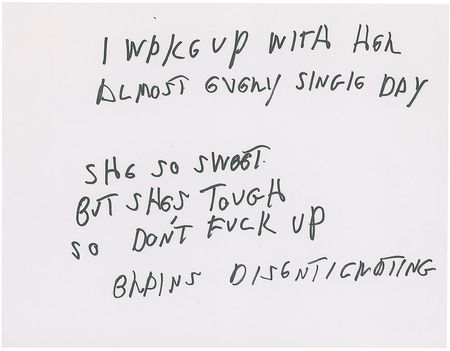 I WAKE UP WITH HER
ALMOST EVERY SINGLE DAY
SHE SO SWEET
BUT SHE'S TOUGH
SO DON'T FUCK UP
BRAINS DISENTIGRATING